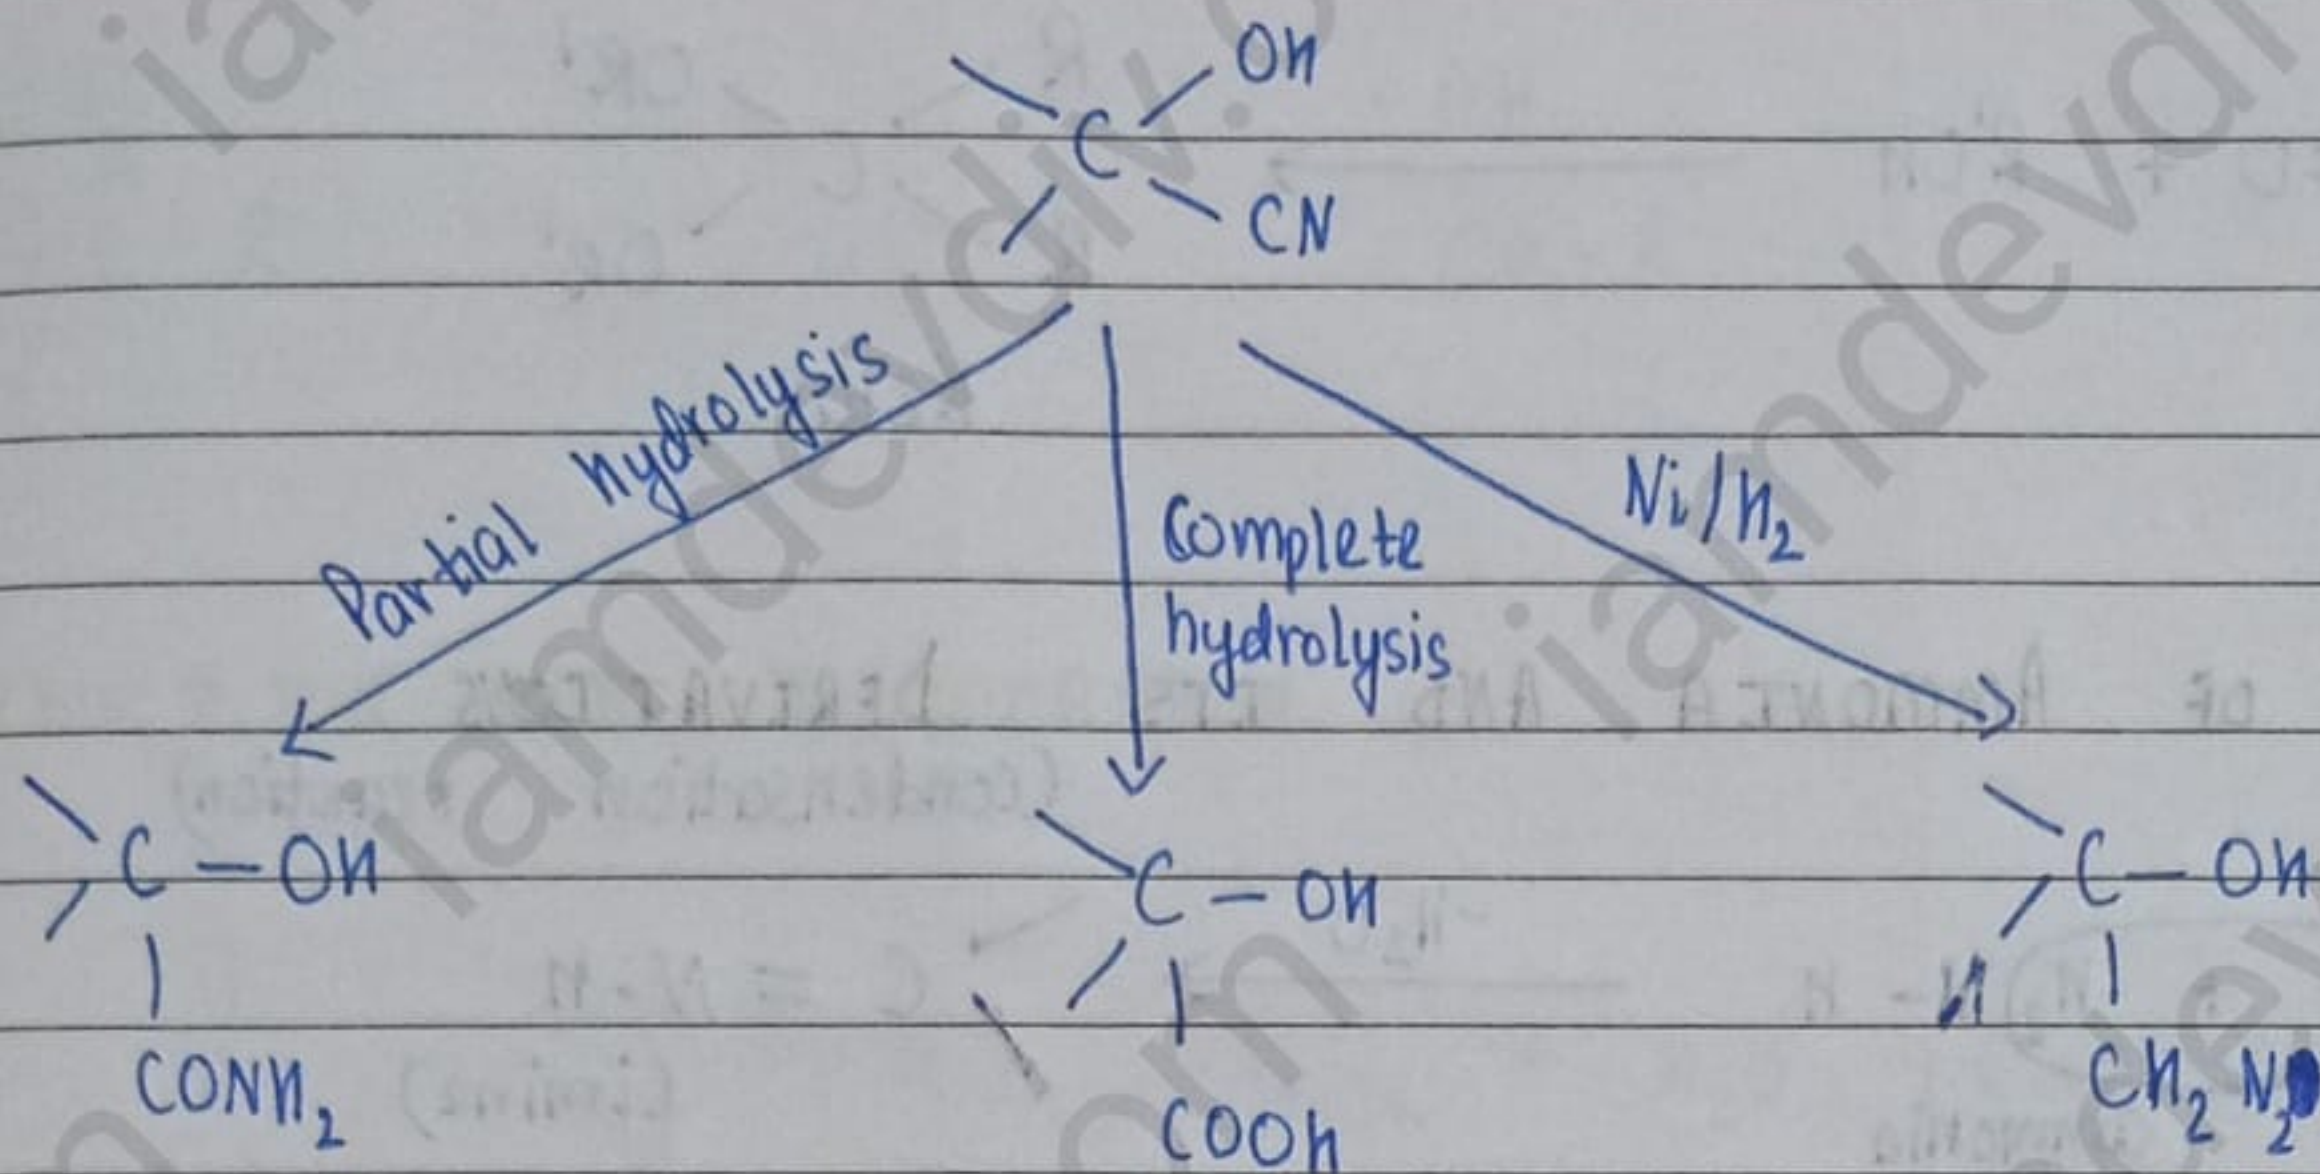 OH
C
CN
Partial hydrolysis
Complete
hydrolysis
Ni/H2
C - OH
CONH2
C - OH
COOH
C - OH
H
CH2 N
iamdevdiv.com